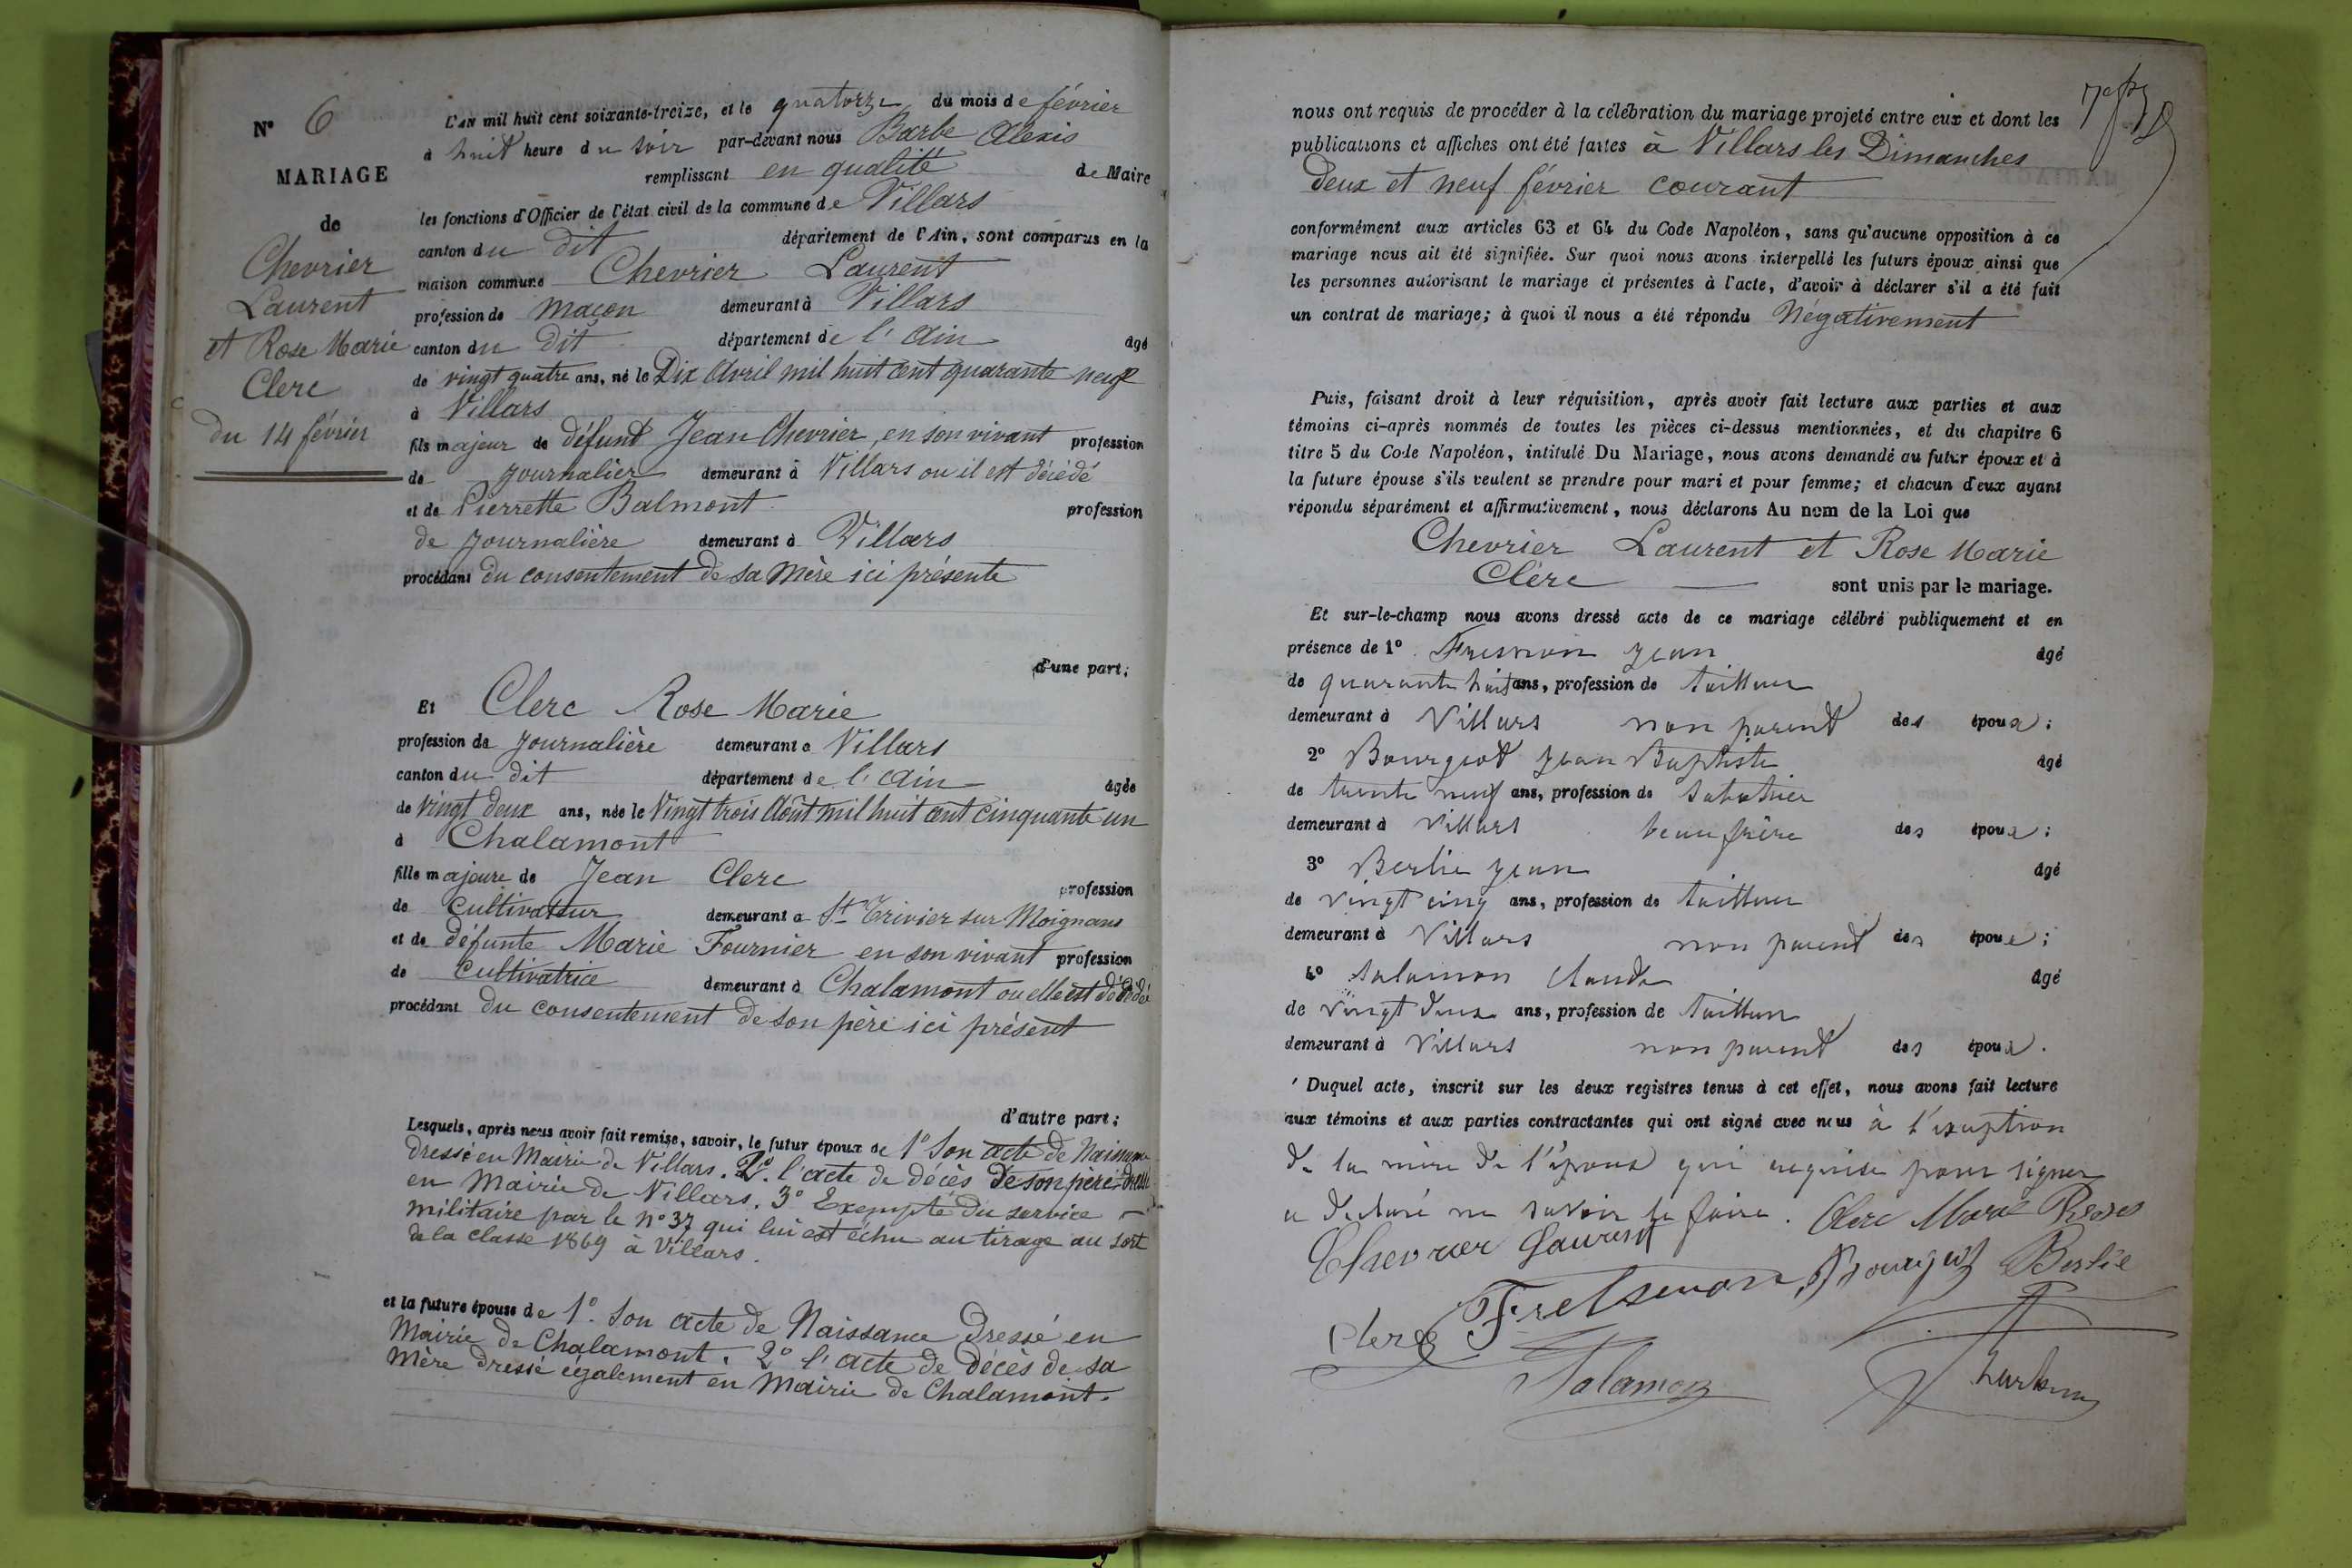 N° 6
MARIAGE
de
Chevrier
Laurent
et Rose Marie
Clerc
du 14 février
L'AN mil huit cent soixante-treize, et le quatorze du mois de février
à huit heure du soir par-devant nous Barbe Alexis
remplissant en qualité de Maire
les fonctions d'Officier de l'état civil de la commune de Villars
canton du dit département de l'Ain, sont comparus en la
maison commune Chevrier Laurent
profession de maçon demeurant à Villars
canton du dit département de l'Ain âgé
de vingt quatre ans, né le Dix Avril mil huit cent quarante neuf
à Villars
fils majeur de défunt Jean Chevrier, en son vivant profession
de journalier demeurant à Villars ou il est décédé
et de Pierrette Balmont profession
de journalière demeurant à Villars
procédant du consentement de sa Mère ici présente
d'une part;
Et Clerc Rose Marie
profession de journalière demeurant à Villars
canton du dit département de l'Ain âgée
de Vingt deux ans, née le Vingt trois Août mil huit cent cinquante un
à Chalamont
fille majeure de Jean Clerc profession
de Cultivateur demeurant à St Trivier sur Moignans
et de défunte Marie Fournier en son vivant profession
de Cultivatrice demeurant à Chalamont ou elle est décédée
procédant du consentement de son père ici présent
d'autre part;
Lesquels, après nous avoir fait remise, savoir, le futur époux de 1° Son acte de Naissance
dressé en Mairie de Villars. 2° l'acte de décès de son père dressé
en Mairie de Villars. 3° Exempté du service
militaire par le n° 37 qui lui est échu au tirage au sort
de la classe 1869 à Villars.
et la future épouse de 1°. Son acte de Naissance Dressé en
Mairie de Chalamont. 2° l'acte de Décès de sa
Mère Dressé également en Mairie de Chalamont.
nous ont requis de procéder à la célébration du mariage projeté entre eux et dont les
publications et affiches ont été faites à Villars les Dimanches
deux et neuf février courant
conformément aux articles 63 et 64 du Code Napoléon, sans qu'aucune opposition à ce
mariage nous ait été signifiée. Sur quoi nous avons interpellé les futurs époux ainsi que
les personnes autorisant le mariage et présentes à l'acte, d'avoir à déclarer s'il a été fait
un contrat de mariage; à quoi il nous a été répondu Négativement
Puis, faisant droit à leur réquisition, après avoir fait lecture aux parties et aux
témoins ci-après nommés de toutes les pièces ci-dessus mentionnées, et du chapitre 6
titre 5 du Code Napoléon, intitulé Du Mariage, nous avons demandé au futur époux et à
la future épouse s'ils veulent se prendre pour mari et pour femme; et chacun d'eux ayant
répondu séparément et affirmativement, nous déclarons Au nom de la Loi que
Chevrier Laurent et Rose Marie
Clerc sont unis par le mariage.
Et sur-le-champ nous avons dressé acte de ce mariage célébré publiquement et en
présence de 1° Jean âgé
de quarante huit ans, profession de tailleur
demeurant à Villars non parent des époux;
2° Bourgeot Jean Baptiste âgé
de trente neuf ans, profession de sabotier
demeurant à Villars beau frère des époux;
3° Berlie Jean âgé
de vingt cinq ans, profession de tailleur
demeurant à Villars non parent des époux;
4° Salamon Claude âgé
de vingt deux ans, profession de tailleur
demeurant à Villars non parent des époux.
Duquel acte, inscrit sur les deux registres tenus à cet effet, nous avons fait lecture
aux témoins et aux parties contractantes qui ont signé avec nous à l'exeption
de la mère de l'époux qui requise pour signer
a déclaré ne savoir le faire. Clerc Marie
Chevrier Laurent
Bourgeot Berlie
Clerc
Salamon